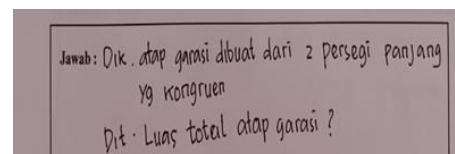 Jawab : Dik . atap garasi dibuat dari 2 persegi panjang
yg kongruen
Dit . Luas total atap garasi ?